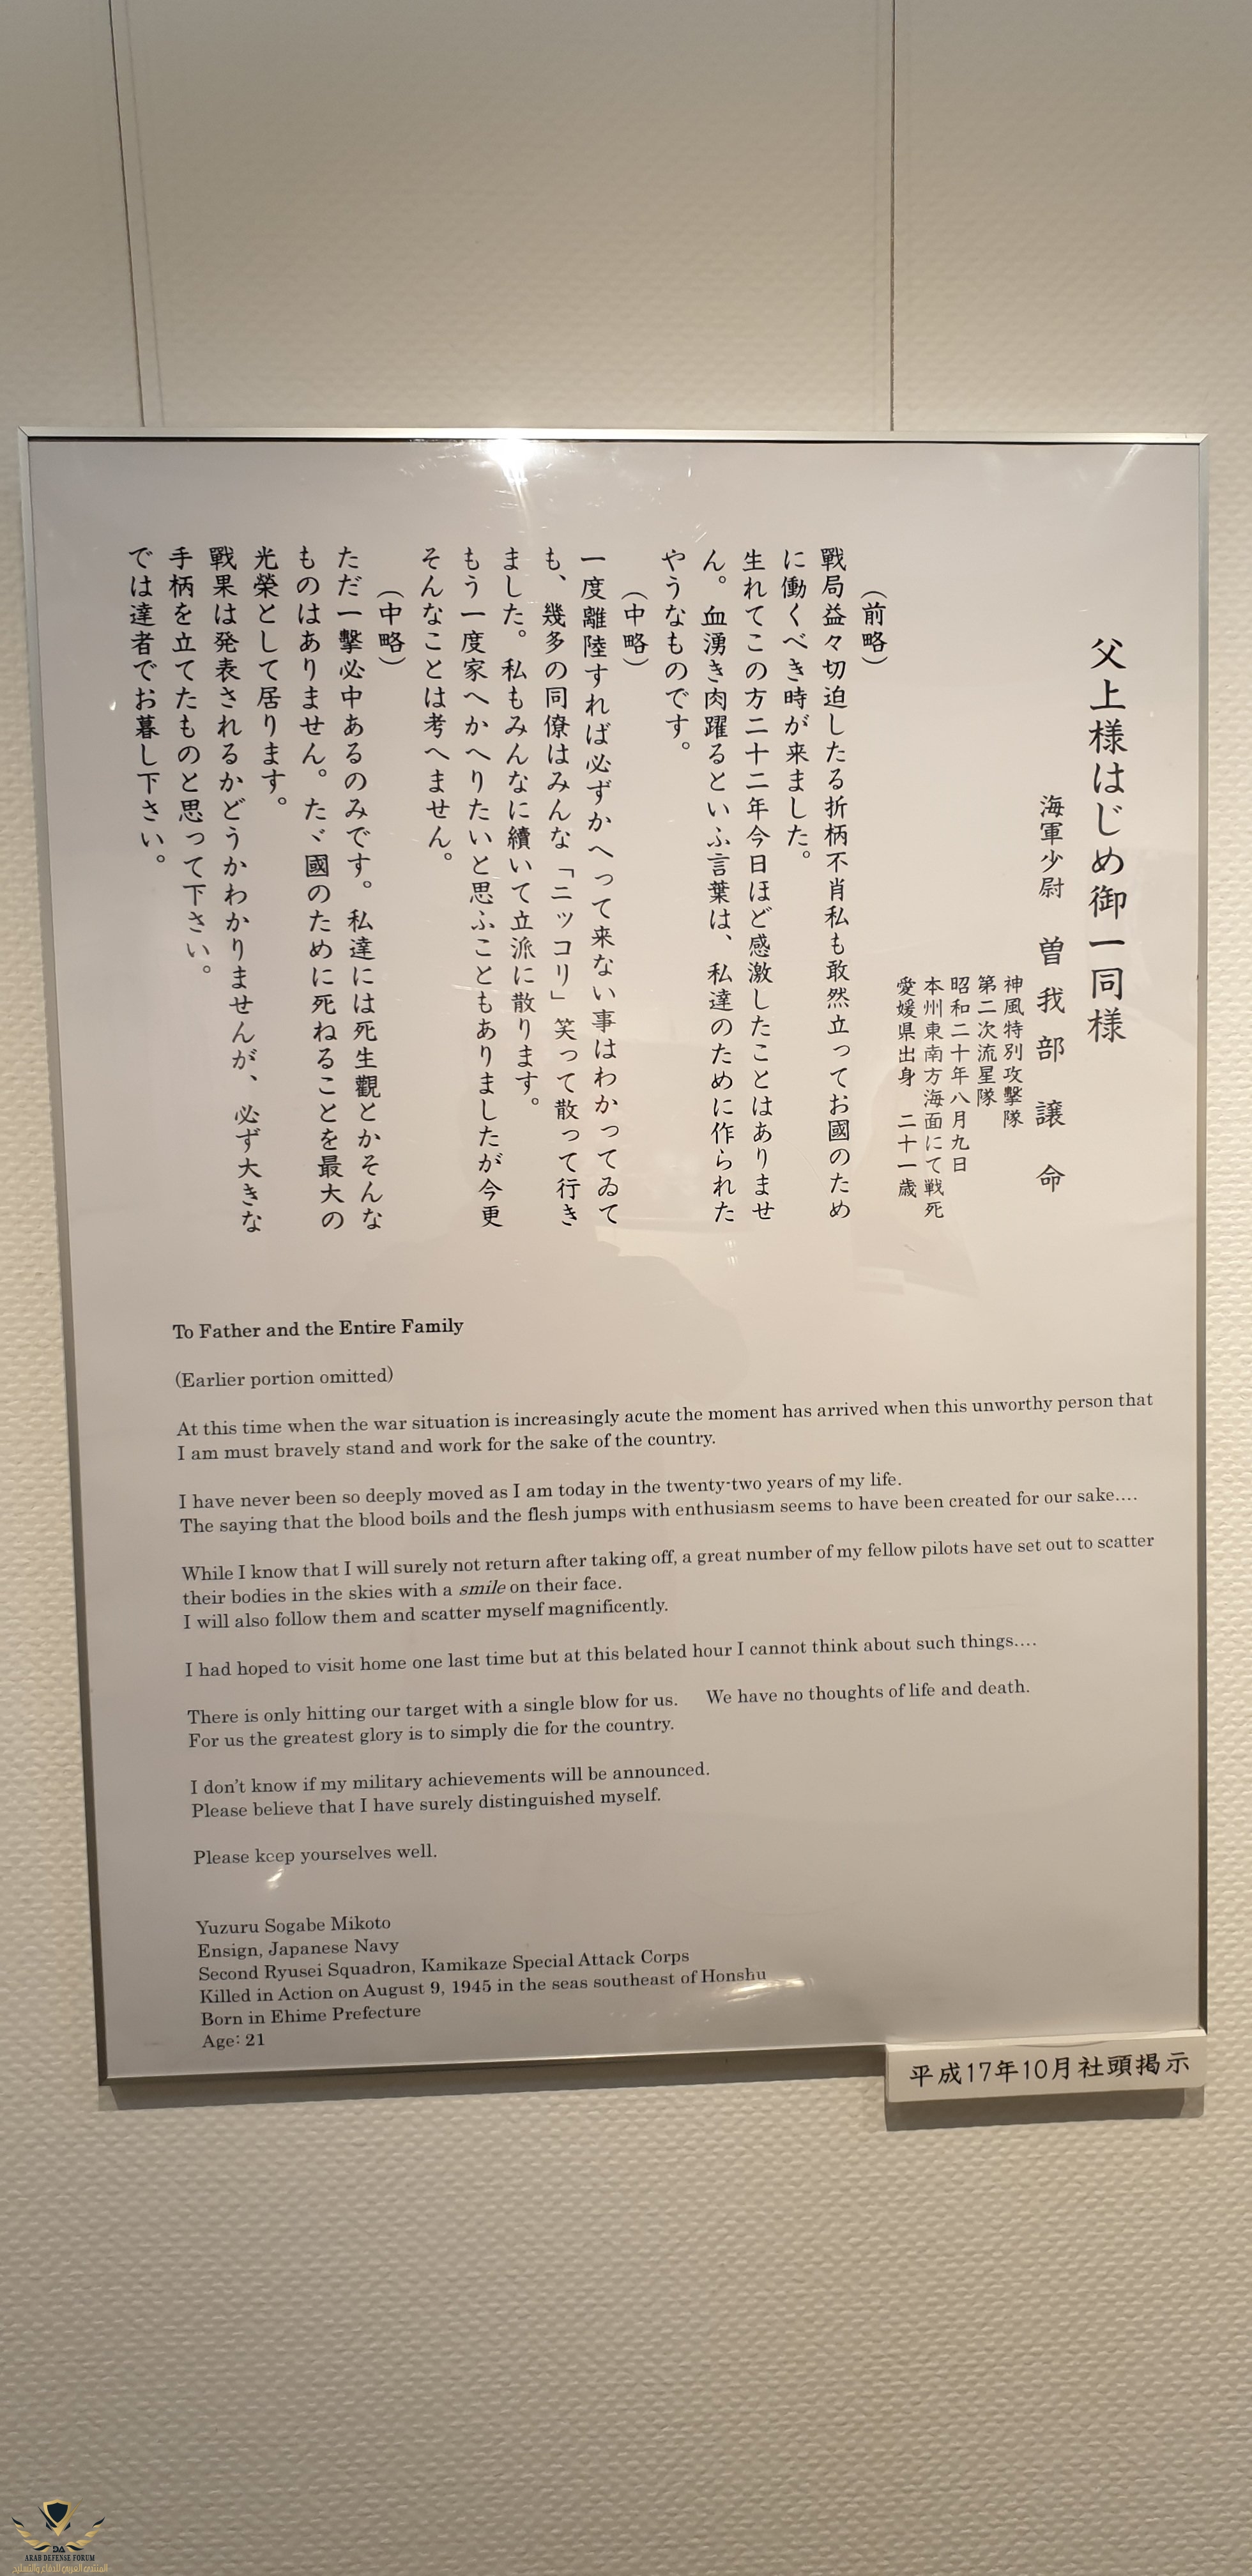 父上様はじめ御一同様
海軍少尉 曽我部 譲 命
神風特別攻擊隊
第二次流星隊
昭和二十年八月九日
本州東南方海面にて戦死
愛媛県出身 二十一歳
（前略）
戰局益々切迫したる折柄不肖私も敢然立ってお國のため
に働くべき時が来ました。
生れてこの方二十二年今日ほど感激したことはありませ
ん。血湧き肉躍るといふ言葉は、私達のために作られた
やうなものです。
（中略）
一度離陸すれば必ずかへって来ない事はわかってゐて
も、幾多の同僚はみんな「ニッコリ」笑って散って行き
ました。私もみんなに續いて立派に散ります。
もう一度家へかへりたいと思ふこともありましたが今更
そんなことは考へません。
（中略）
ただ一擊必中あるのみです。私達には死生觀とかそんな
ものはありません。たゞ國のために死ねることを最大の
光榮として居ります。
戰果は発表されるかどうかわかりませんが、必ず大きな
手柄を立てたものと思って下さい。
では達者でお暮し下さい。
To Father and the Entire Family
(Earlier portion omitted)
At this time when the war situation is increasingly acute the moment has arrived when this unworthy person that
I am must bravely stand and work for the sake of the country.
I have never been so deeply moved as I am today in the twenty-two years of my life.
The saying that the blood boils and the flesh jumps with enthusiasm seems to have been created for our sake....
While I know that I will surely not return after taking off, a great number of my fellow pilots have set out to scatter
their bodies in the skies with a smile on their face.
I will also follow them and scatter myself magnificently.
I had hoped to visit home one last time but at this belated hour I cannot think about such things....
There is only hitting our target with a single blow for us. We have no thoughts of life and death.
For us the greatest glory is to simply die for the country.
I don't know if my military achievements will be announced.
Please believe that I have surely distinguished myself.
Please keep yourselves well.
Yuzuru Sogabe Mikoto
Ensign, Japanese Navy
Second Ryusei Squadron, Kamikaze Special Attack Corps
Killed in Action on August 9, 1945 in the seas southeast of Honshu
Born in Ehime Prefecture
Age: 21
平成17年10月社頭掲示
DA
ARAB DEFENSE FORUM
المنتدى العربي للدفاع والتسليح